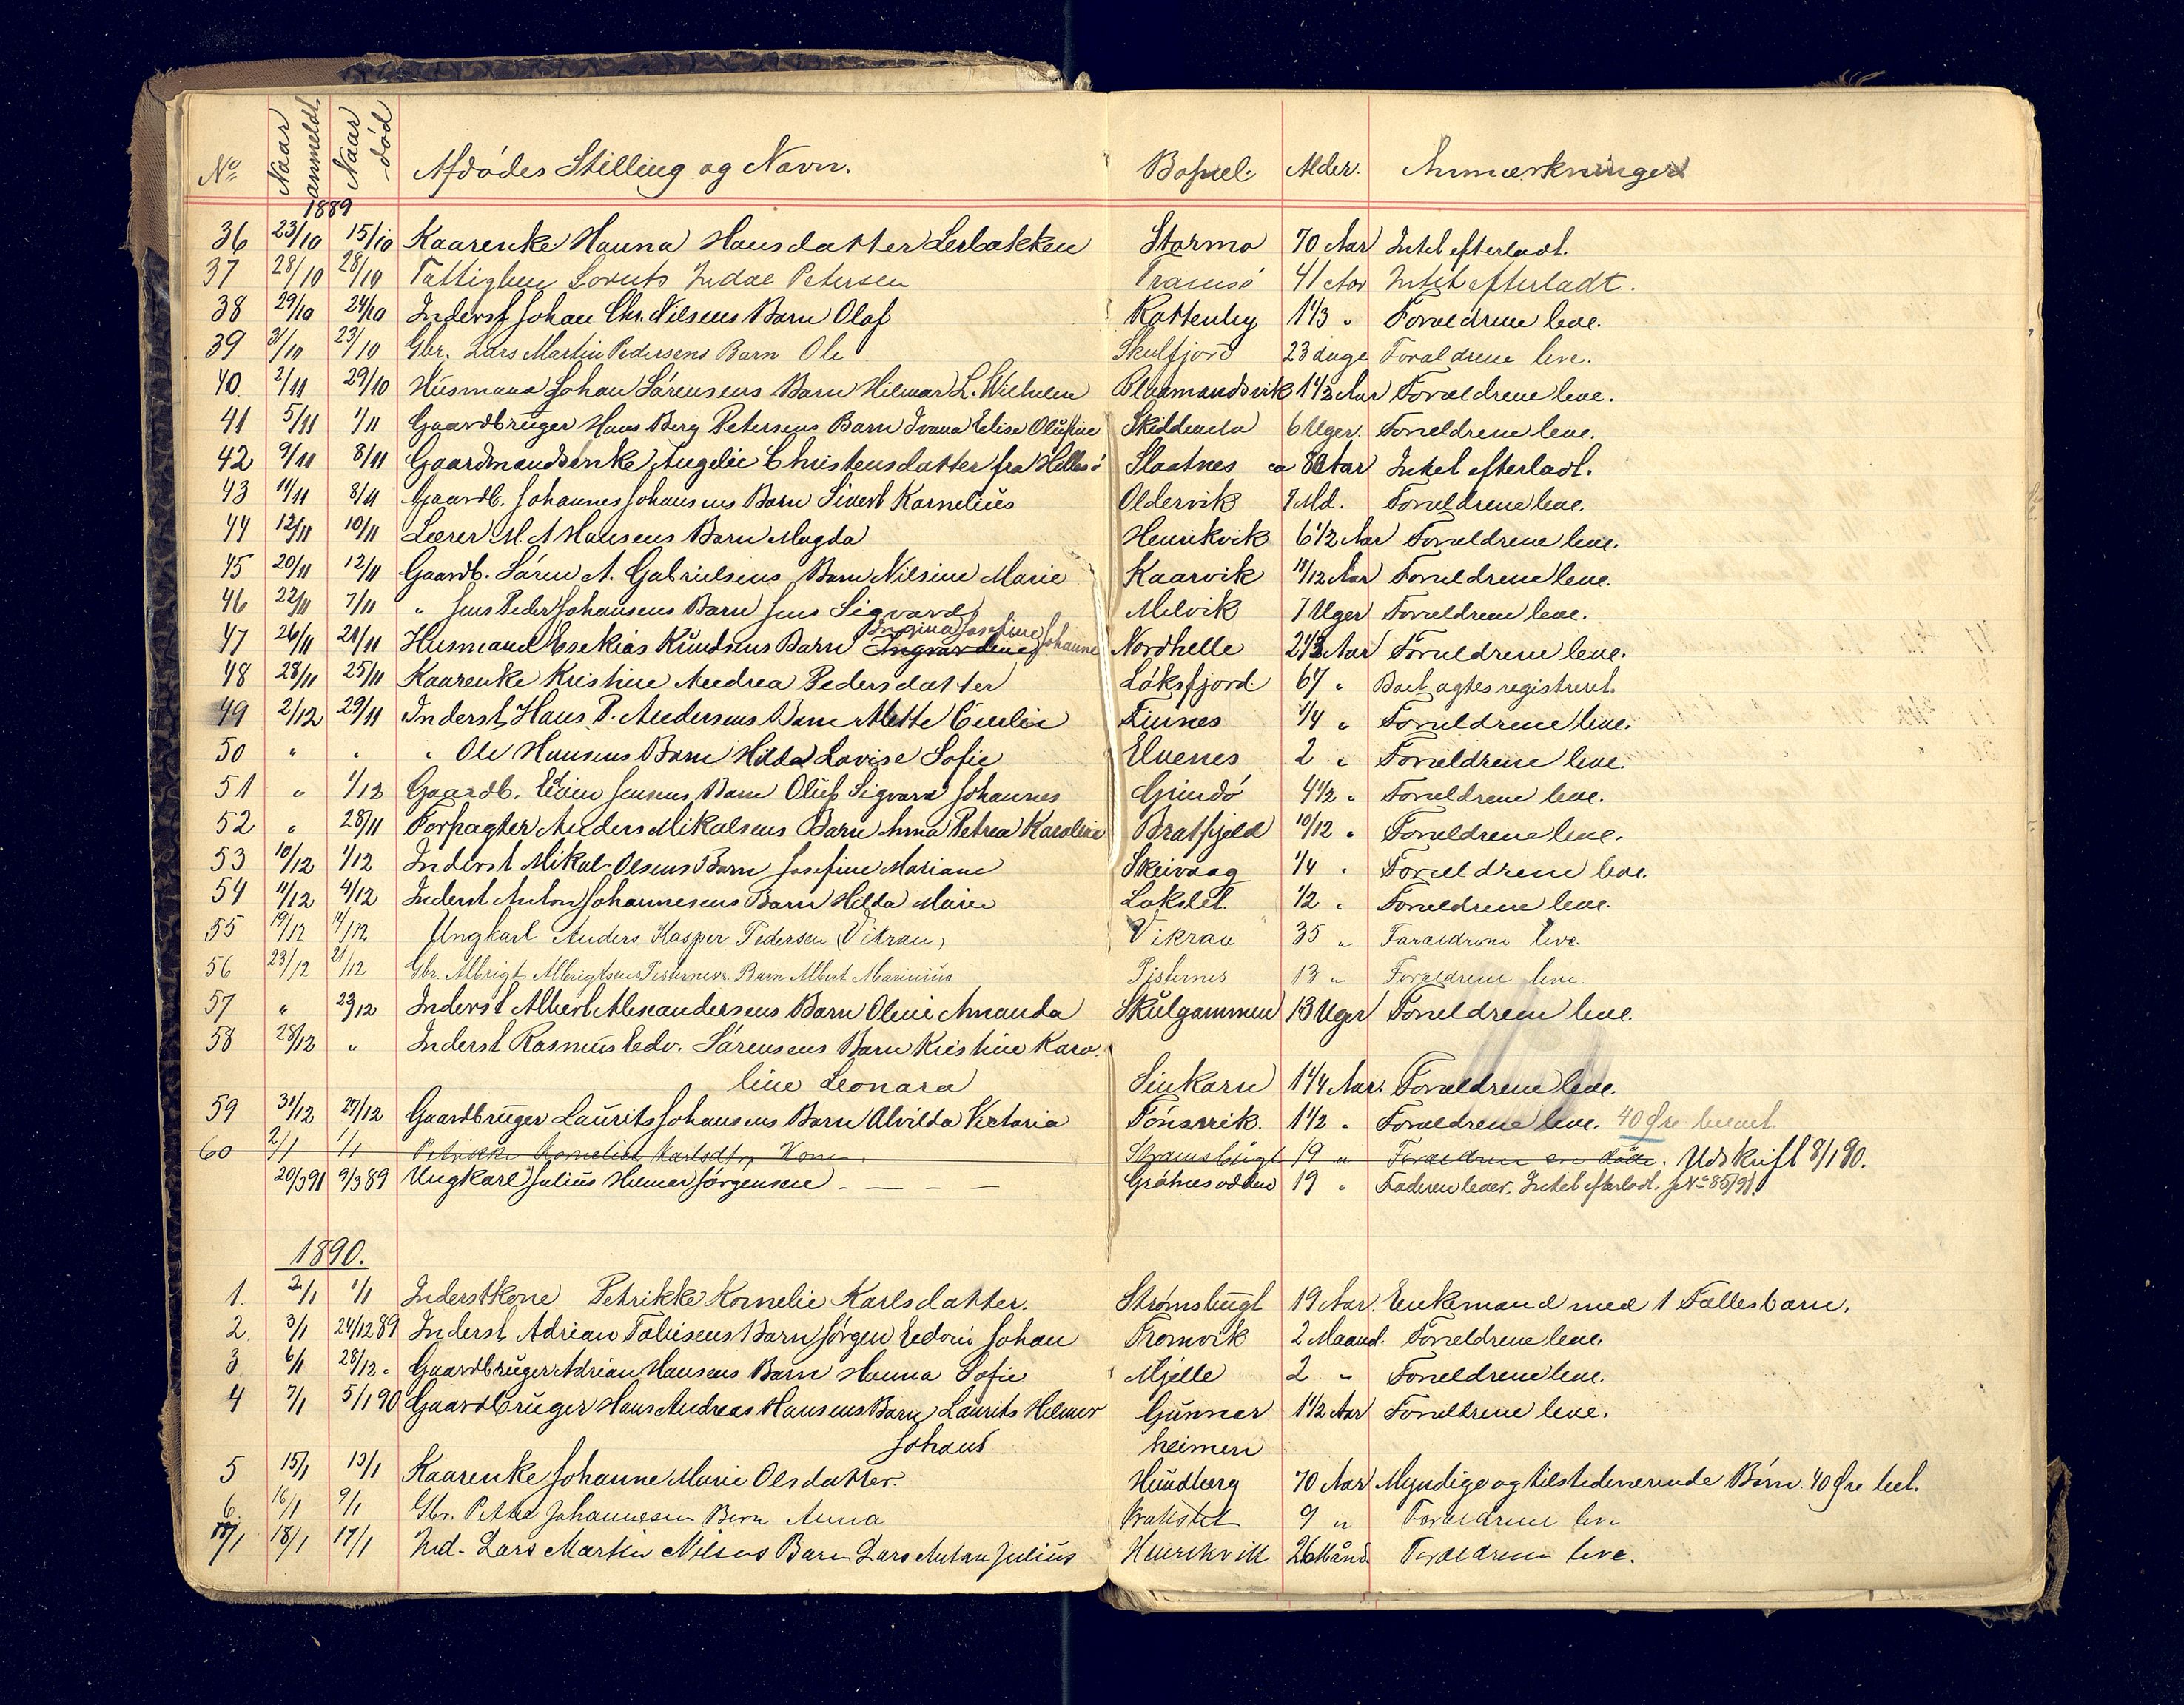 No Naar anmeldt Naar død Afdødes Stilling og Navn. Bopæl. Alder. Anmærkninger
1889
36 23/10 15/10 Kaarenke Hanna Hansdatter Lerbakken Stormo 70 Aar Intet efterladt.
37 28/10 28/10 Fattiglem Lornts Indal Petersen Tromsø 41 Aar Intet efterladt.
38 29/10 24/10 Inderst Johan Chr. Nilsens Barn Olaf Kattenby 1 1/3 " Forældrene leve.
39 31/10 23/10 Gbr. Lars Martin Pedersens Barn Ole Skulfjord 23 dage Forældrene leve.
40. 2/11 29/10 Husmand Johan Sørensens Barn Hilmar L. Wilhelm Blaamandsvik 1 1/3 Aar Forældrene leve.
41 5/11 1/11 Gaardbruger Hans Berg Petersens Barn Ivana Elise Olufine 6 Uger. Forældrene leve.
42 9/11 8/11 Gaardmandsenke Angelie Christensdatter fra Hillesø Slaatnes ca 80 Aar Intet efterladt.
43 11/11 8/11 Gaardb. Johannes Johansens Barn Sivert Kornelius Oldervik 7 Md. Forældrene leve.
44 12/11 10/11 Lærer M. A Hansens Barn Magda Henrikvik 6 1/2 Aar Forældrene leve.
45 20/11 12/11 Gaardb. Søren A. Gabrielsens Barn Nilsine Marie Kaarvik 11/12 Aar Forældrene leve.
46 22/11 7/11 " Jens Peder Johansens Barn Jens Sigvard Melvik 7 Uger Forældrene leve.
47 26/11 21/11 Husmand Esekias Knudsens Barn Ingvardine Josefine Johanne Nordhelle 2 1/2 Aar Forældrene leve.
48 28/11 25/11 Kaarenke Kristine Andrea Pedersdatter Løksfjord 67 " Boet agtes registreret.
49 2/12 29/11 Inderst Hans P. Andersens Barn Mette Emilie Finnes 1/4 " Forældrene leve.
50 " " " Ole Hansens Barn Hilda Lovise Sofie Elvenes 2 " Forældrene leve.
51 " 1/12 Gaardb. Edvin Jensens Barn Oluf Sigvard Johannes Grindø 4 1/2 " Forældrene leve.
52 " 28/11 Forpagter Anders Mikalsens Barn Anna Petrea Karoline Bratfjeld 10/12 " Forældrene leve.
53 10/12 1/12 Inderst Mikal Olsens Barn Josefine Mariane Skeivaag 1/4 " Forældrene leve.
54 11/12 4/12 Inderst Anton Johannesens Barn Hilda Marie Lokslet. 1/2 " Forældrene leve.
55 19/12 14/12 Ungkarl Anders Kasper Pedersen (Vikran) Vikran 35 " Forældrene leve.
56 23/12 21/12 Gbr. Albrigt Albrigtsens Pisternes Barn Albert Marinius Pisternes 13 " Forældrene leve.
57 " 23/12 Inderst Albert Alexandersens Barn Oline Amanda Skulgammen 13 Uger Forældrene leve.
58 28/12 " Inderst Rasmus Edv. Sørensens Barn Kristine Karo-
line Leonara Sinkarn 1 1/4 Aar. Forældrene leve.
59 31/12 27/12 Gaardbruger Laurits Johansens Barn Alvilda Victoria Tønsvik. 1 1/2 " Forældrene leve. 40 Øre betalt
60 2/1 1/1 Petrikke Kornelie Karlsdtr, Kone Strømsbugt 19 " Forældrene er døde. Udskrift 8/1 90.
20/3 91 9/3 89 Ungkarl Julius Hilmar Jørgensen - - - - Grøtnesodden 19 " Faderen lever. Intet efterladt. J No 85/91.
1890.
1. 2/1 1/1 Inderstkone Petrikke Kornelie Karlsdatter. Strømsbugt 19 Aar. Enkemand med 1 Fællesbarn.
2. 3/1 24/12 89 Inderst Adrian Tobiesens Barn Jørgen Edvin Johan Tromvik 2 Maand. Forældrene leve.
3 6/1 28/12 " Gaardbruger Adrian Hansens Barn Hanna Sofie Mjelle 2 " Forældrene leve.
4 7/1 5/1 90 Gaardbruger Hans Andreas Hansens Barn Laurits Helmer Gunnar 1 1/2 Aar Forældrene leve.
Johans heimen
5 15/1 13/1 Kaarenke Johanne Marie Olsdatter. Hundberg 70 Aar Myndige og tilstedeværende Børn. 40 Øre bet.
6. 16/1 9/1 Gbr. Petter Johannesen Barn Anna Brakstet 9 " Forældrene leve
18/1 17/1 Ind. Lars Martin Nilsens Barn Lars Anton Julius Henrikvik 26 Månd Forældrene leve.